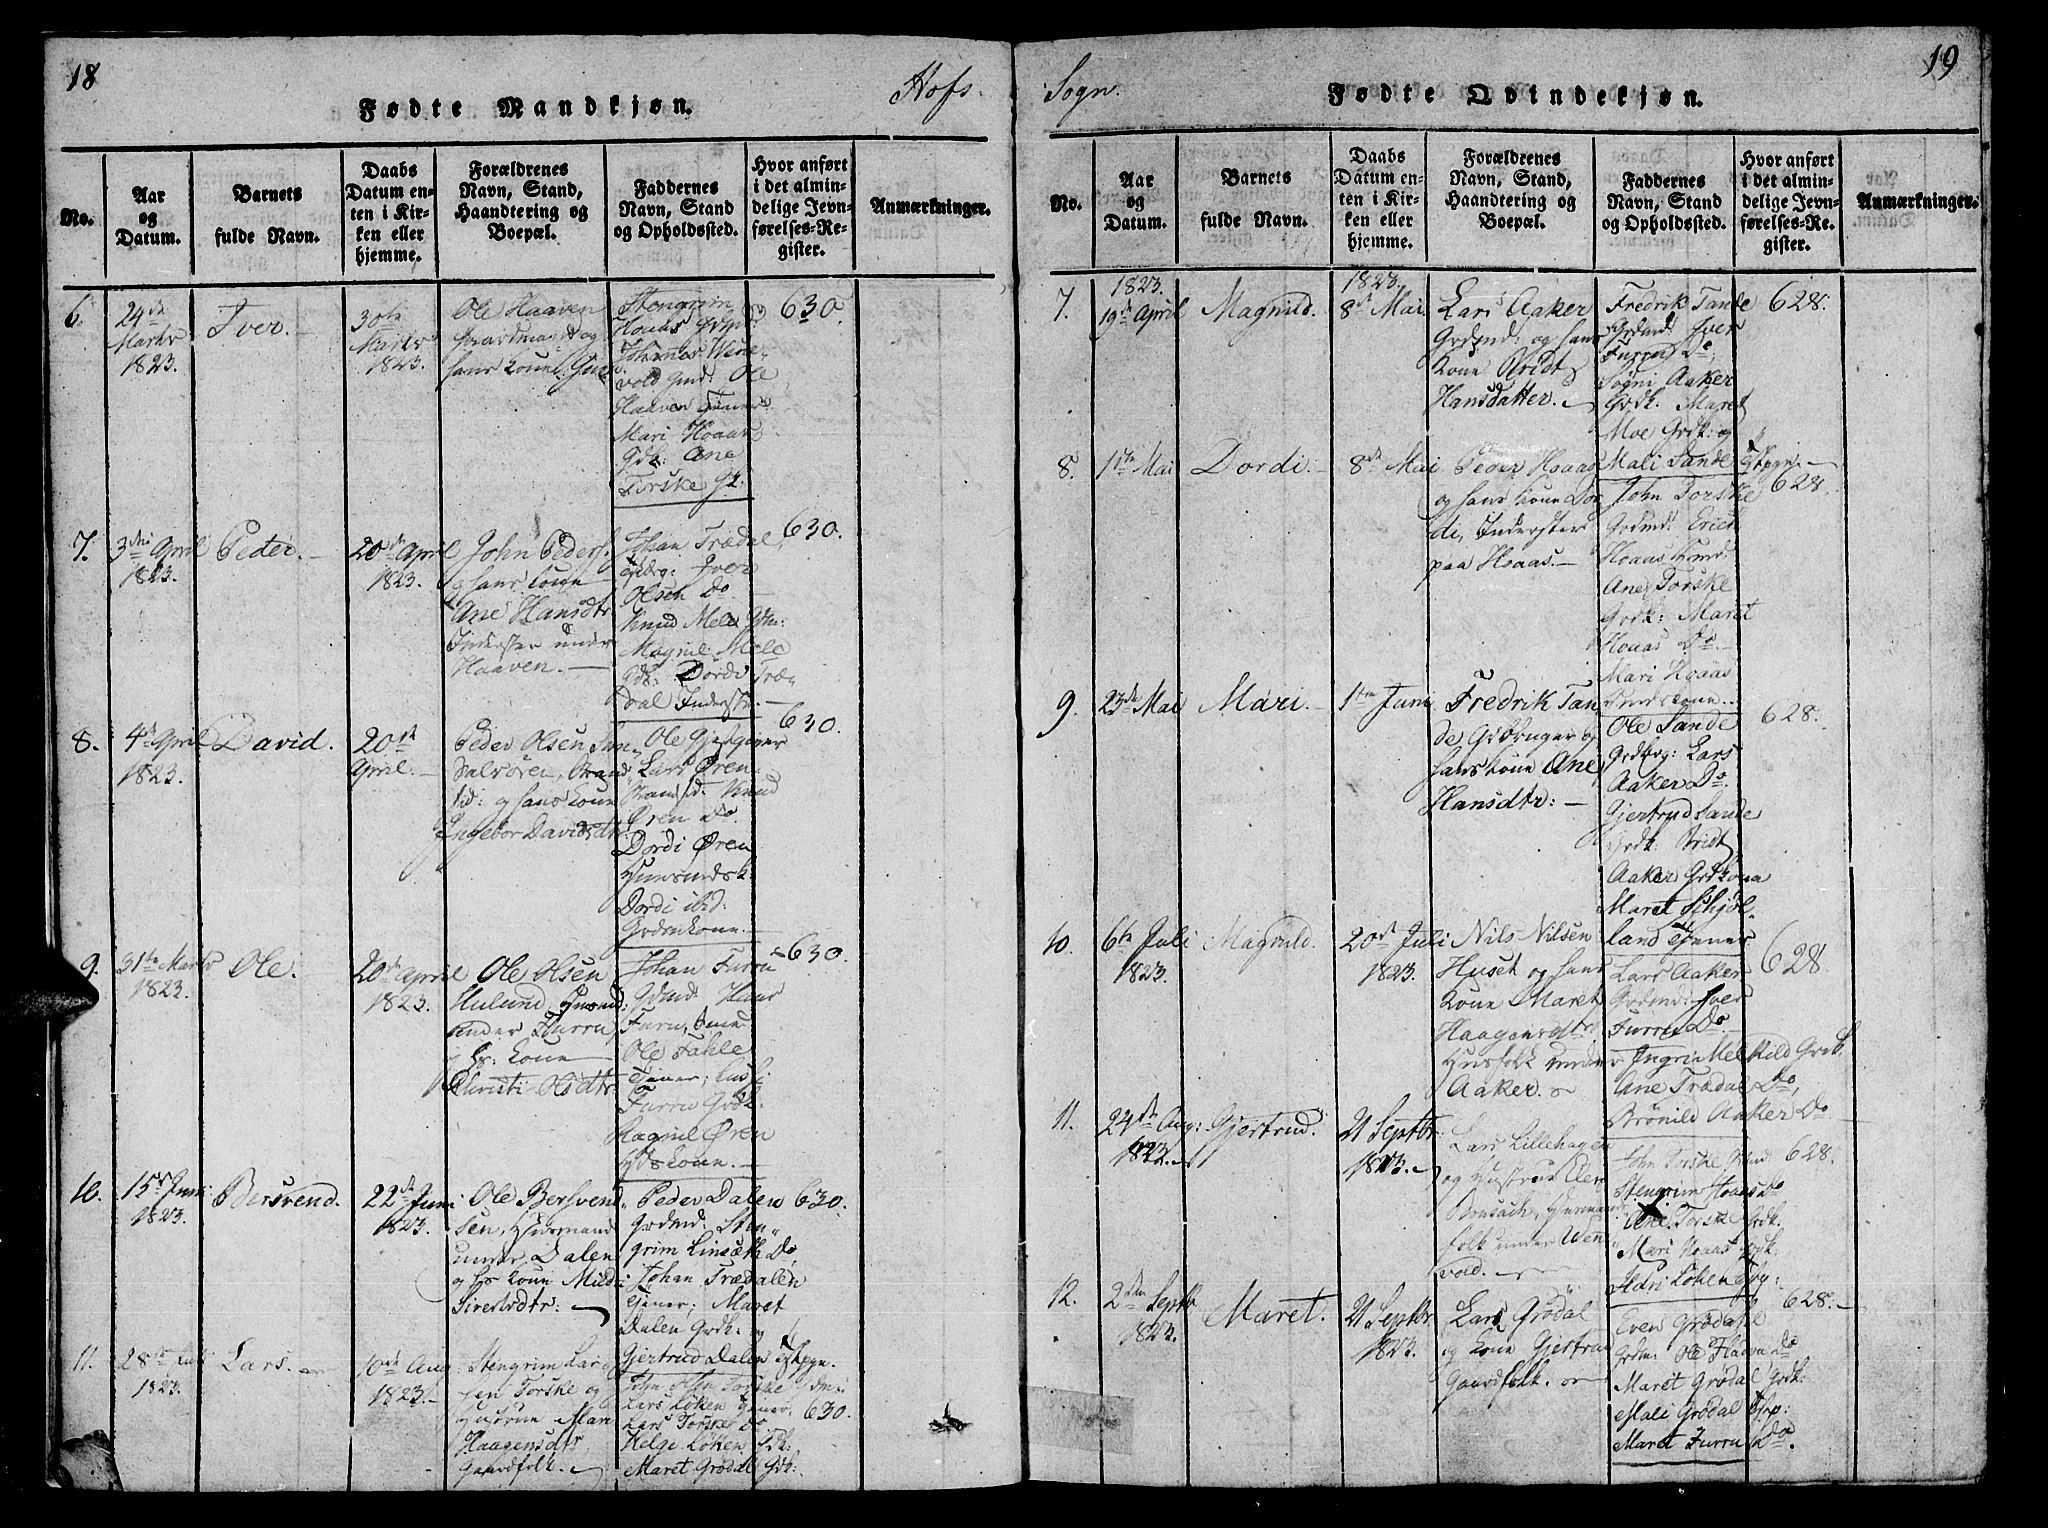 18
Hofs
Fødte Mandkjøn.
No.
Aar
og
Datum.
Barnets
fulde Navn.
Daabs
Datum en-
ten i Kir-
ken eller
hjemme.
Forældrenes
Navn, Stand,
Haandtering og
Boepæl.
Faddernes
Navn, Stand
og Opholdssted.
Hvor anført
i det almin-
delige Jevn-
førelses-Re-
gister.
Anmærkninger.
6.
24de
Marts
1823.
Iver.
30te
Marts
1823.
Ole Haaven
og
hans Kone
Stengrim
Hoaas
Johannes Wene-
vold Gmd: Ole
Haaven Tjener
Mari Hoaas
Gdk: Ane
Torske
630.
7.
3die April
1823.
Peder.
20de April
1823.
John Peders.
og hans Kone
Ane Hansdtr
Inderster under
Haaven.
Johan Trædal,
Iver
Olsen Do
Knud Mele
Magnil Mele
Gdk: Dordi Træ-
dal Inderst.
630.
8.
4de April
1823.
David.
20de
April.
Peder Olsen Sun-
dalsøren, Strand
sid: og hans Kone
Ingebor Davidsdtr
Ole Gjestgiver
Lars Øren
Strandsid. Knud
Øren Do
Dordi Øren
Huusmdsk.
Dordi ibid:
Grdmkone.
630.
9.
31te Marts
1823.
Ole.
20de April
1823.
Ole Olsen
Hulund, Husmd:
under Furru
og Hs: Kone
Christi Olsdtr
Johan Furru
Grdmd: Hans
Furru,
Ole Fahle
Tjener;
Furru Grdk.
Ragnil Øren
630.
10.
15de Juni
1823.
Bersvend.
22de Juni
1823.
Ole Bersvend-
sen, Huusmand
under Dalen
og Hs Kone Mildri
Siverts­dtr:
Peder Dalen
Grdmd: Sten-
grim Linsæth Do
Johan Trædalen
Tjener; Maret
Dalen Grdk: og
Gjertrud Dalen
630.
11.
28de Juli
1823.
Lars.
10de Aug.
1823.
Stengrim Lar-
sen Torske og
Hustrue Mari
Haagensdtr
Gaardfolk.
John Torske
Lars Løken Tjener,
Lars Torske Do
Helge Løken
Maret Grødal
630.
19
Sogn.
Fødte Qvindekjøn.
No.
Aar
og
Datum.
Barnets
fulde Navn.
Daabs
Datum en-
ten i Kir-
ken eller
hjemme.
Forældrenes
Navn, Stand,
Haandtering og
Boepæl.
Faddernes
Navn, Stand
og Opholdssted.
Hvor anført
i det almin-
delige Jevn-
førelses-Re-
gister.
Anmærkninger.
7.
1823.
19de April
Magnild.
1823.
8de Mai
Lars Aaker
Grdmd: og hans
Kone Bridt
Hansdatter.
Fredrik Tande
Grdmd: Iver
Furru Do,
Søgni Aaker
Grdk. Maret
Moe Grdk: og
Mali Sande
628.
8.
1ste Mai
Dordi.
8de Mai
Peder Hoaas
og hans Kone Dor-
di, Inderster
paa Hoaas.
John Torske
Grdmd: Erick
Hoaas
Ane Torske
Grdk: Maret
Hoaas Do.
Mari Hoaas
628.
9.
23de Mai
Mari.
1ste Juni
Fredrik Tan-
de Grdbruger og
hans Kone Ane
Hansdtr:
Ole Sande
Grdbrg: Lars
Aaker Do.
Gjertrud Sande
Grdk: Bridt
Aaker Grdkona
Maret Schjøl-
land Tjener
628.
10.
6te Juli
1823.
Magnild.
20de Juli
1823.
Nils Nilsen
Huset og hans
Kone Maret
Haagensdtr
Husfolk under
Aaker.
Lars Aaker
Grdmd: Iver
Furru Do
Ingri Melkild Grdk.
Ane Trædal Do,
Brønild Aaker Do
628
11.
24de Aug:
1823.
Gjertrud.
21 Septbr.
1823.
Lars Lillehagen
og Hustrue Elen
Brusach, Husmand
folk under Wen-
vold.
John Torske Grdmd
Stengrim Hoaas Do
Ane Torske Grdk.
Mari Hoaas Grdk.
Ildri Løken
628.
12.
2den Septb
1823.
Maret.
21 Septbr
1823.
Lars Grødal
og Kone Gjertru
Gaardfolk.
Even Grødal
Grdm: Ole Flaavu Do
Maret Grødal Grdk:
Mali Grødal
Maret Furru Do.
628.